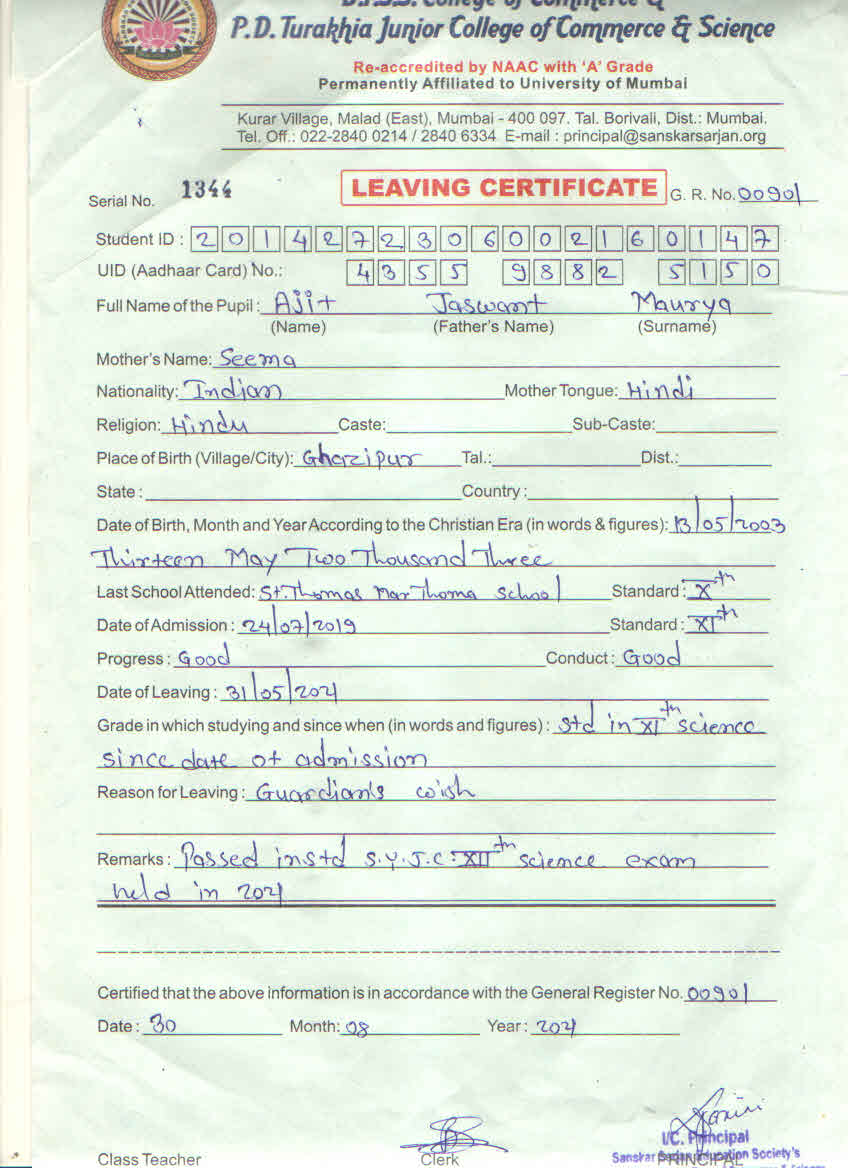 College of Commerce &
P.D. Turakhia Junior College of Commerce & Science
Re-accredited by NAAC with 'A' Grade
Permanently Affiliated to University of Mumbai
Kurar Village, Malad (East), Mumbai - 400 097. Tal. Borivali, Dist.: Mumbai.
Tel. Off.: 022-2840 0214 / 2840 6334 E-mail : principal@sanskarsarjan.org
Serial No. 1344 LEAVING CERTIFICATE G. R. No. 00901
Student ID : 2014272306002160147
UID (Aadhaar Card) No.: 4355 9882 5150
Full Name of the Pupil : Ajit Jaswant Maurya
(Name) (Father's Name) (Surname)
Mother's Name: Seema
Nationality: Indian Mother Tongue: Hindi
Religion: Hindu Caste: Sub-Caste:
Place of Birth (Village/City): Ghazipur Tal.: Dist.:
State : Country :
Date of Birth, Month and Year According to the Christian Era (in words & figures): 13/05/2003
Thirteen May Two Thousand Three
Last School Attended: St. Thomas Mar Thoma School Standard : Xth
Date of Admission : 24/07/2019 Standard : XIth
Progress : Good Conduct : Good
Date of Leaving : 31/05/2021
Grade in which studying and since when (in words and figures) : Std in XIth science
since date of admission
Reason for Leaving : Guardian's wish
Remarks : Passed in std S.Y.J.C. XIIth science exam
held in 2021
Certified that the above information is in accordance with the General Register No. 00901
Date : 30 Month: 08 Year : 2021
I/C. Principal
Class Teacher Clerk PRINCIPAL
Sanskar Sarjan Education Society's